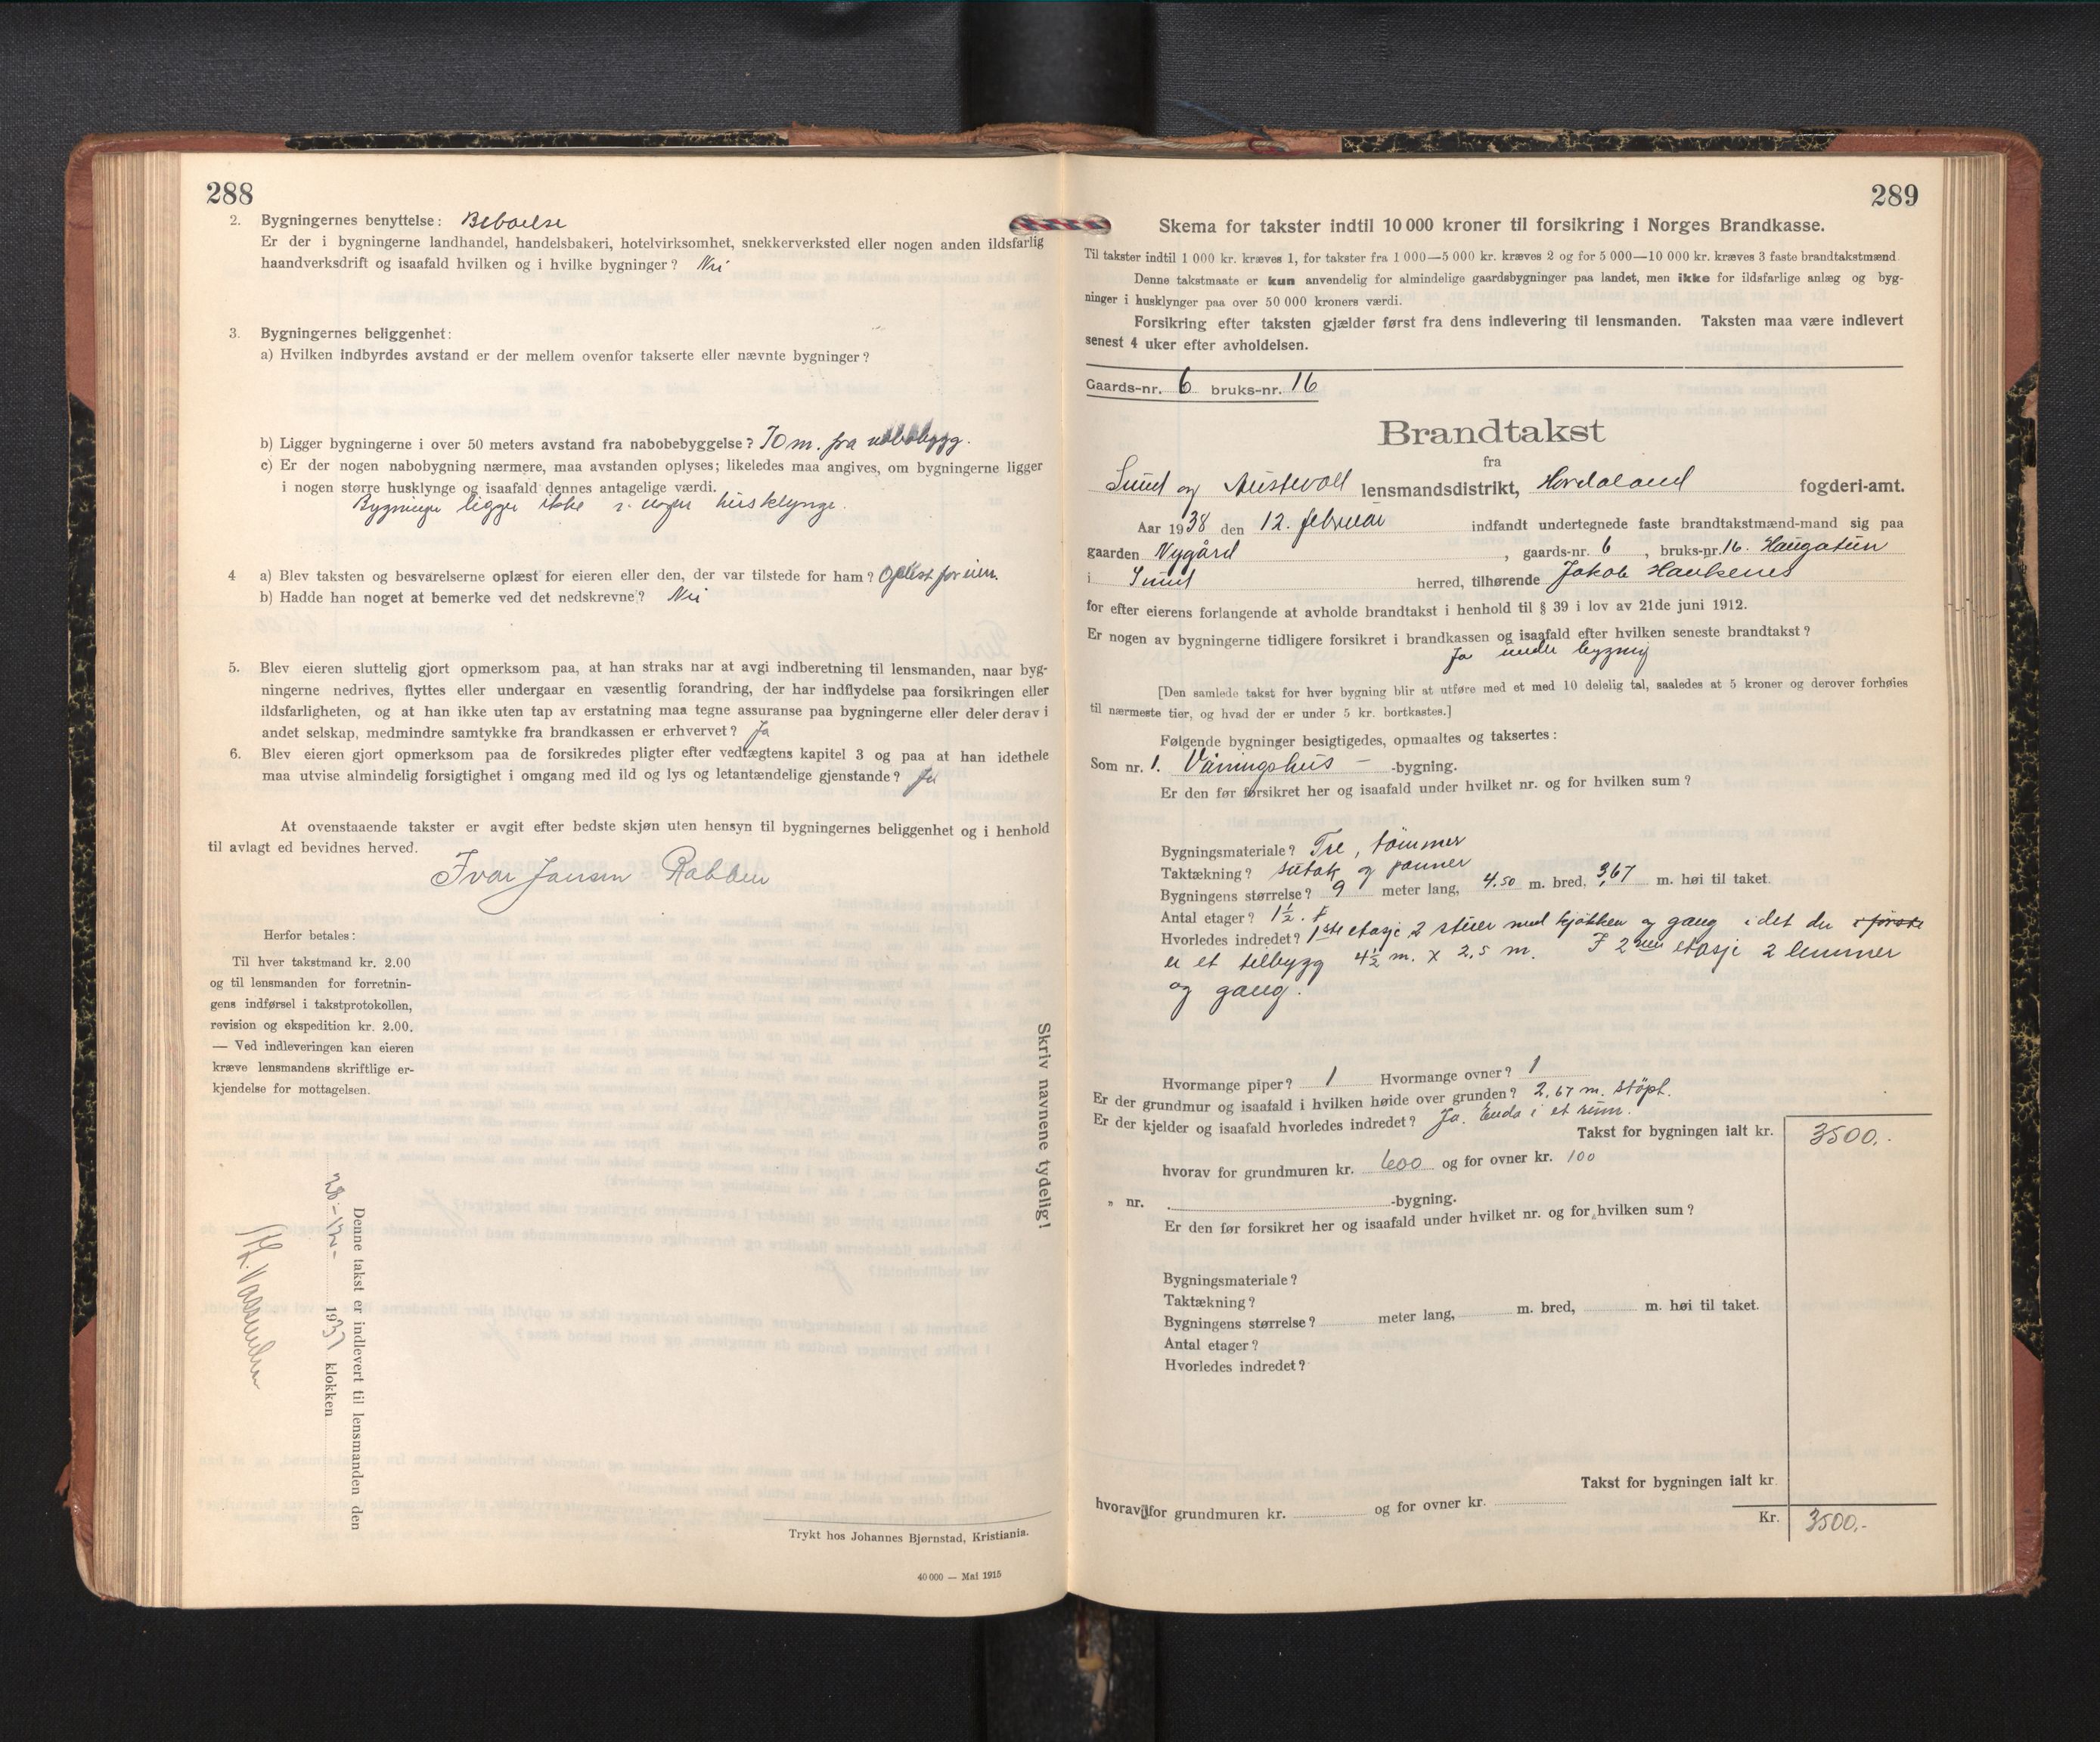 288
2. Bygningernes benyttelse: Beboelse
Er der i bygningerne landhandel, handelsbakeri, hotelvirksomhet, snekkerverksted eller nogen anden ildsfarlig
haandverksdrift og isaafald hvilken og i hvilke bygninger? Nei
3. Bygningernes beliggenhet:
a) Hvilken indbyrdes avstand er der mellem ovenfor takserte eller nævnte bygninger?
b) Ligger bygningerne i over 50 meters avstand fra nabobebyggelse? 70 m. fra nabobygg.
c) Er der nogen nabobygning nærmere, maa avstanden oplyses; likeledes maa angives, om bygningerne ligger
i nogen større husklynge og isaafald dennes antagelige værdi.
Bygninger ligger ikke i nogen husklynge.
4 a) Blev taksten og besvarelserne oplæst for eieren eller den, der var tilstede for ham? Oplest for eieren.
b) Hadde han noget at bemerke ved det nedskrevne? Nei
5. Blev eieren sluttelig gjort opmerksom paa, at han straks nar at avgi indberetning til lensmanden, naar byg-
ningerne nedrives, flyttes eller undergaar en væsentlig forandring, der har indflydelse paa forsikringen eller
ildsfarligheten, og at han ikke uten tap av erstatning maa tegne assuranse paa bygningerne eller deler derav i
andet selskap, medmindre samtykke fra brandkassen er erhvervet? Ja
6. Blev eieren gjort opmerksom paa de forsikredes pligter efter vedtægtens kapitel 3 og paa at han idethele
maa utvise almindelig forsigtighet i omgang med ild og lys og letantændelige gjenstande? Ja
At ovenstaaende takster er avgit efter bedste skjøn uten hensyn til bygningernes beliggenhet og i henhold
til avlagt ed bevidnes herved.
Ivar Jansen Rabben
Herfor betales:
Til hver takstmand kr. 2.00
og til lensmanden for forretnin-
gens indførsel i takstprotokollen,
revision og ekspedition kr. 2.00.
— Ved indleveringen kan eieren
kræve lensmandens skriftlige er-
kjendelse for mottagelsen.
Skriv navnene tydelig!
Denne takst er indlevert til lensmanden den
28-12- 1937 klokken
Trykt hos Johannes Bjørnstad, Kristiania.
40 000 — Mai 1915
289
Skema for takster indtil 10 000 kroner til forsikring i Norges Brandkasse.
Til takster indtil 1 000 kr. kræves 1, for takster fra 1 000—5 000 kr. kræves 2 og for 5 000—10 000 kr. kræves 3 faste brandtakstmænd
Denne takstmaate er kun anvendelig for almindelige gaardsbygninger paa landet, men ikke for ildsfarlige anlæg og byg-
ninger i husklynger paa over 50 000 kroners værdi.
Forsikring efter taksten gjælder først fra dens indlevering til lensmanden. Taksten maa være indlevert
senest 4 uker efter avholdelsen.
Gaards-nr. 6 bruks-nr. 16
Brandtakst
fra
Sund og Austevoll lensmandsdistrikt, Hordaland fogderi-amt.
Aar 1938 den 12. februar indfandt undertegnede faste brandtakstmænd-mand sig paa
gaarden Nygård, gaards-nr. 6, bruks-nr. 16. Haugatun
i Sund herred, tilhørende Jakob Haukenes
for efter eierens forlangende at avholde brandtakst i henhold til § 39 i lov av 21de juni 1912.
Er nogen av bygningerne tidligere forsikret i brandkassen og isaafald efter hvilken seneste brandtakst?
Ja under bygning
[Den samlede takst for hver bygning blir at utføre med et med 10 delelig tal, saaledes at 5 kroner og derover forhøies
til nærmeste tier, og hvad der er under 5 kr. bortkastes.]
Følgende bygninger besigtigedes, opmaaltes og taksertes:
Som nr. 1. Våningshus - -bygning.
Er den før forsikret her og isaafald under hvilket nr. og for hvilken sum?
Bygningsmateriale? Tre, tømmer
Taktækning? sutak og panner
Bygningens størrelse? 9 meter lang, 4.50 m. bred, 3,67 m. høi til taket.
Antal etager? 1½.
Hvorledes indredet? I 1ste etasje 2 stuer med kjøkken og gang i det der i første
er et tilbygg 4½ m. x 2,5 m. I 2nen etasje 2 lemmer
og gang.
Hvormange piper? 1 Hvormange ovner? 1
Er der grundmur og isaafald i hvilken høide over grunden? 2,67 m. støpt.
Er der kjelder og isaafald hvorledes indredet? Ja. Enda i et rum.
Takst for bygningen ialt kr. 3500.-
hvorav for grundmuren kr. 600 og for ovner kr. 100
„ nr. -bygning.
Er den før forsikret her og isaafald under hvilket nr. og for hvilken sum?
Bygningsmateriale?
Taktækning?
Bygningens størrelse? meter lang, m. bred, m. høi til taket.
Antal etager?
Hvorledes indredet?
Takst for bygningen ialt kr.
hvorav for grundmuren kr. og for ovner kr.
Kr. 3500.-